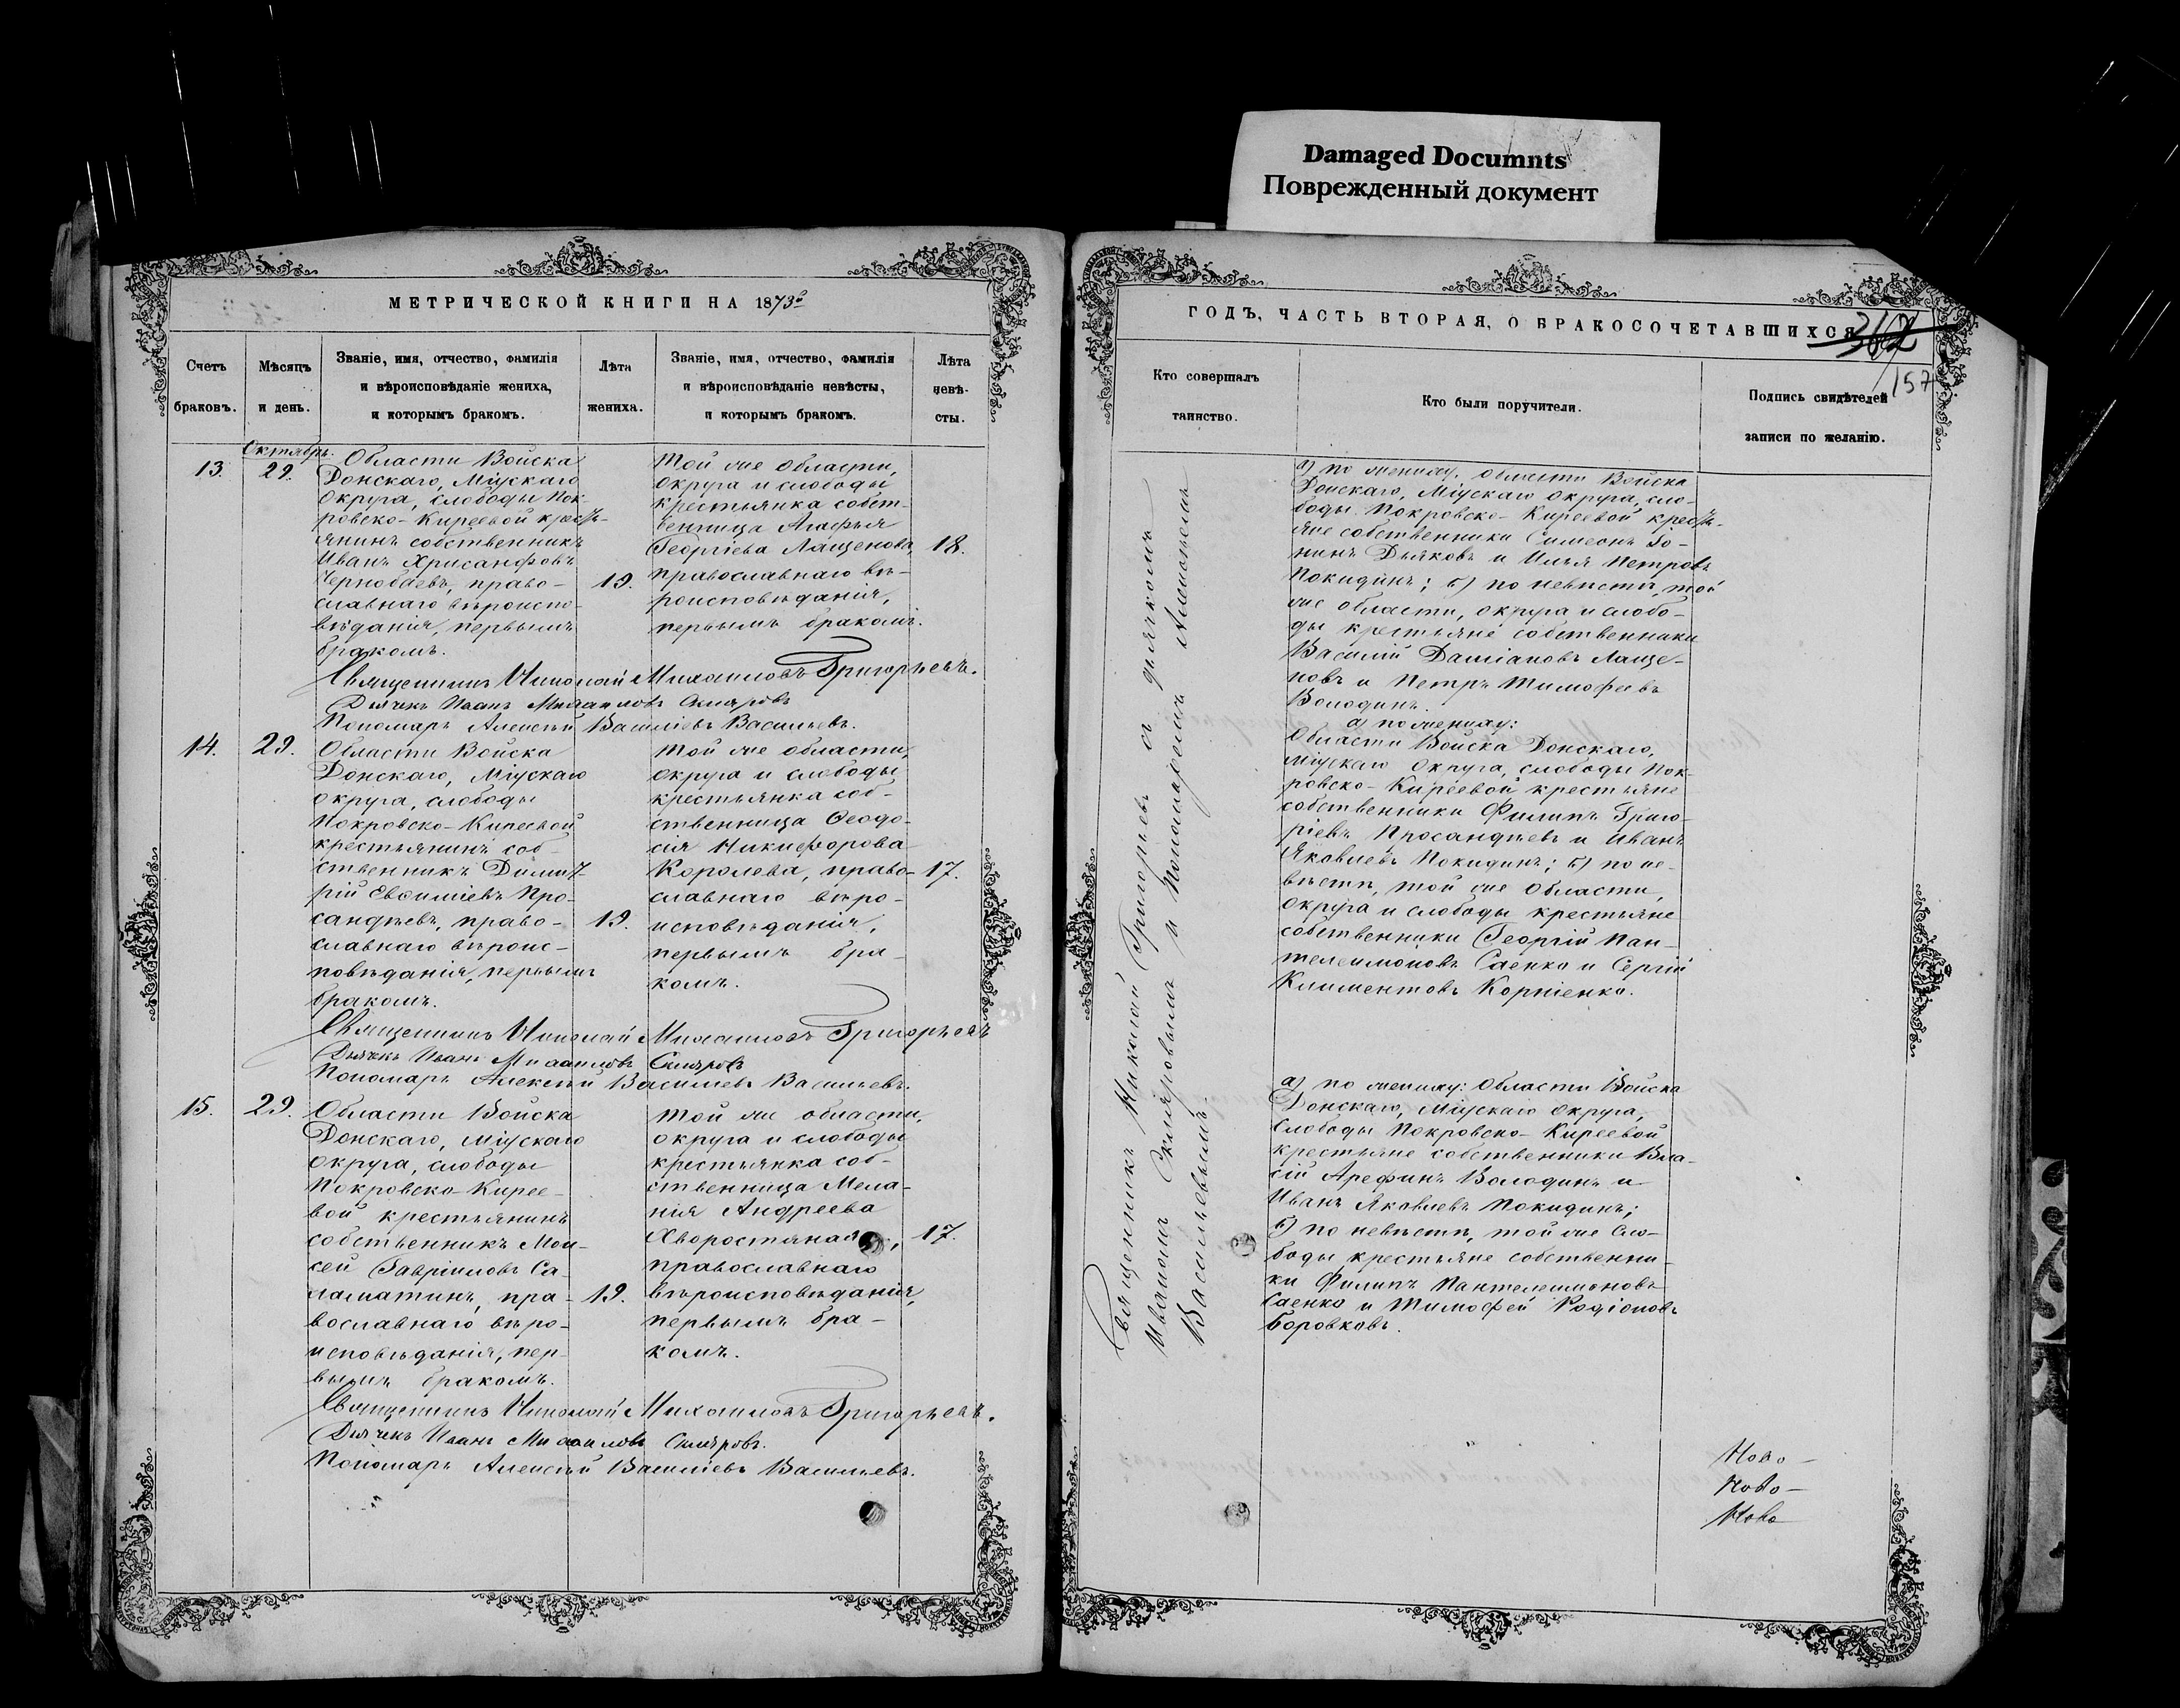 Damaged Documnts
Поврежденный документ
МЕТРИЧЕСКОЙ КНИГИ НА 1873й
Счетъ браковъ.
Мѣсяцъ и день.
Званіе, имя, отчество, фамилія
и вѣроисповѣданіе жениха,
и которымъ бракомъ.
Лѣта жениха.
Званіе, имя, отчество, фамилія
и вѣроисповѣданіе невѣсты,
и которымъ бракомъ.
Лѣта невѣ-
сты.
Октябрь.
13.
29.
Области Войска
Донскаго, Міускаго
округа, слободы Пок-
ровско-Киреевой кресть-
янинъ собственникъ
Иванъ Хрисанфовъ
Чернобаевъ, право-
славнаго вѣроиспо-
вѣданія, первымъ
бракомъ.
19.
Той же области,
округа и слободы
крестьянка собст-
венница Агафья
Георгіева Лащенова,
православнаго вѣ-
роисповѣданія,
первымъ бракомъ.
18.
Священникъ Николай Михаиловъ Григорьевъ.
Дьячекъ Иванъ Михаиловъ Скляровъ
Пономарь Алексѣй Василіевъ Васильевъ.
14.
29.
Области Войска
Донскаго, Міускаго
округа, слободы
Покровско-Киреевой
крестьянинъ соб-
ственникъ Димит-
рій Евфиміевъ Про-
сандѣевъ, право-
славнаго вѣроис-
повѣданія, первымъ
бракомъ.
19.
Той же области,
округа и слободы
крестьянка соб-
ственница Ѳеодо-
сія Никифорова
Королева, право-
славнаго вѣро-
исповѣданія,
первымъ бра-
комъ.
17.
Священникъ Николай Михаиловъ Григорьевъ
Дьячекъ Иванъ Михаиловъ Скляровъ
Пономарь Алексѣй Василіевъ Васильевъ.
15.
29.
Области Войска
Донскаго, Міускаго
округа, слободы
Покровско-Кирее-
вой крестьянинъ
собственникъ Мои-
сей Гавріиловъ Са-
ламатинъ, пра-
вославнаго вѣро-
исповѣданія, пер-
вымъ бракомъ.
19.
Той же области,
округа и слободы
крестьянка соб-
ственница Мела-
нія Андреева
Хворостяная,
православнаго
вѣроисповѣданія,
первымъ бра-
комъ.
17.
Священникъ Николай Михаиловъ Григорьевъ.
Дьячекъ Иванъ Михаиловъ Скляровъ.
Пономарь Алексѣй Василіевъ Васильевъ.
ГОДЪ, ЧАСТЬ ВТОРАЯ, О БРАКОСОЧЕТАВШИХСЯ
157
Кто совершалъ
таинство.
Кто были поручители.
Подпись свидѣтелей
записи по желанію.
Священникъ Николай Григорьевъ съ дьячкомъ
Иваномъ Скляровымъ и Пономаремъ Алексѣемъ
Васильевымъ.
а) по жениху: области Войска
Донскаго, Міускаго округа, сло-
боды Покровско-Киреевой кресть-
яне собственники Симеонъ
Дьяковъ и Илья Петровъ
Покидинъ; б) по невѣстѣ, той
же области, округа и слобо-
ды крестьяне собственники
Василій Даміановъ Лаще-
новъ и Петръ Тимофеевъ
Володинъ.
а) по жениху:
Области Войска Донскаго,
Міускаго округа, слободы Пок-
ровско-Киреевой крестьяне
собственники Филипъ Григо-
ріевъ Просандѣевъ и Иванъ
Яковлевъ Покидинъ; б) по не-
вѣстѣ, той же области,
округа и слободы крестьяне
собственники Георгій Пан-
телеимоновъ Саенко и Сергій
Климентовъ Корніенко.
а) по жениху: Области Войска
Донскаго, Міускаго округа,
слободы Покровско-Киреевой
крестьяне собственники Вла-
сій Арефинъ Володинъ и
Иванъ Яковлевъ Покидинъ;
б) по невѣстѣ, той же сло-
боды крестьяне собственни-
ки Филипъ Пантелеимоновъ
Саенко и Тимофей Родіоновъ
Боровковъ.
Ново-
Ново-
Ново